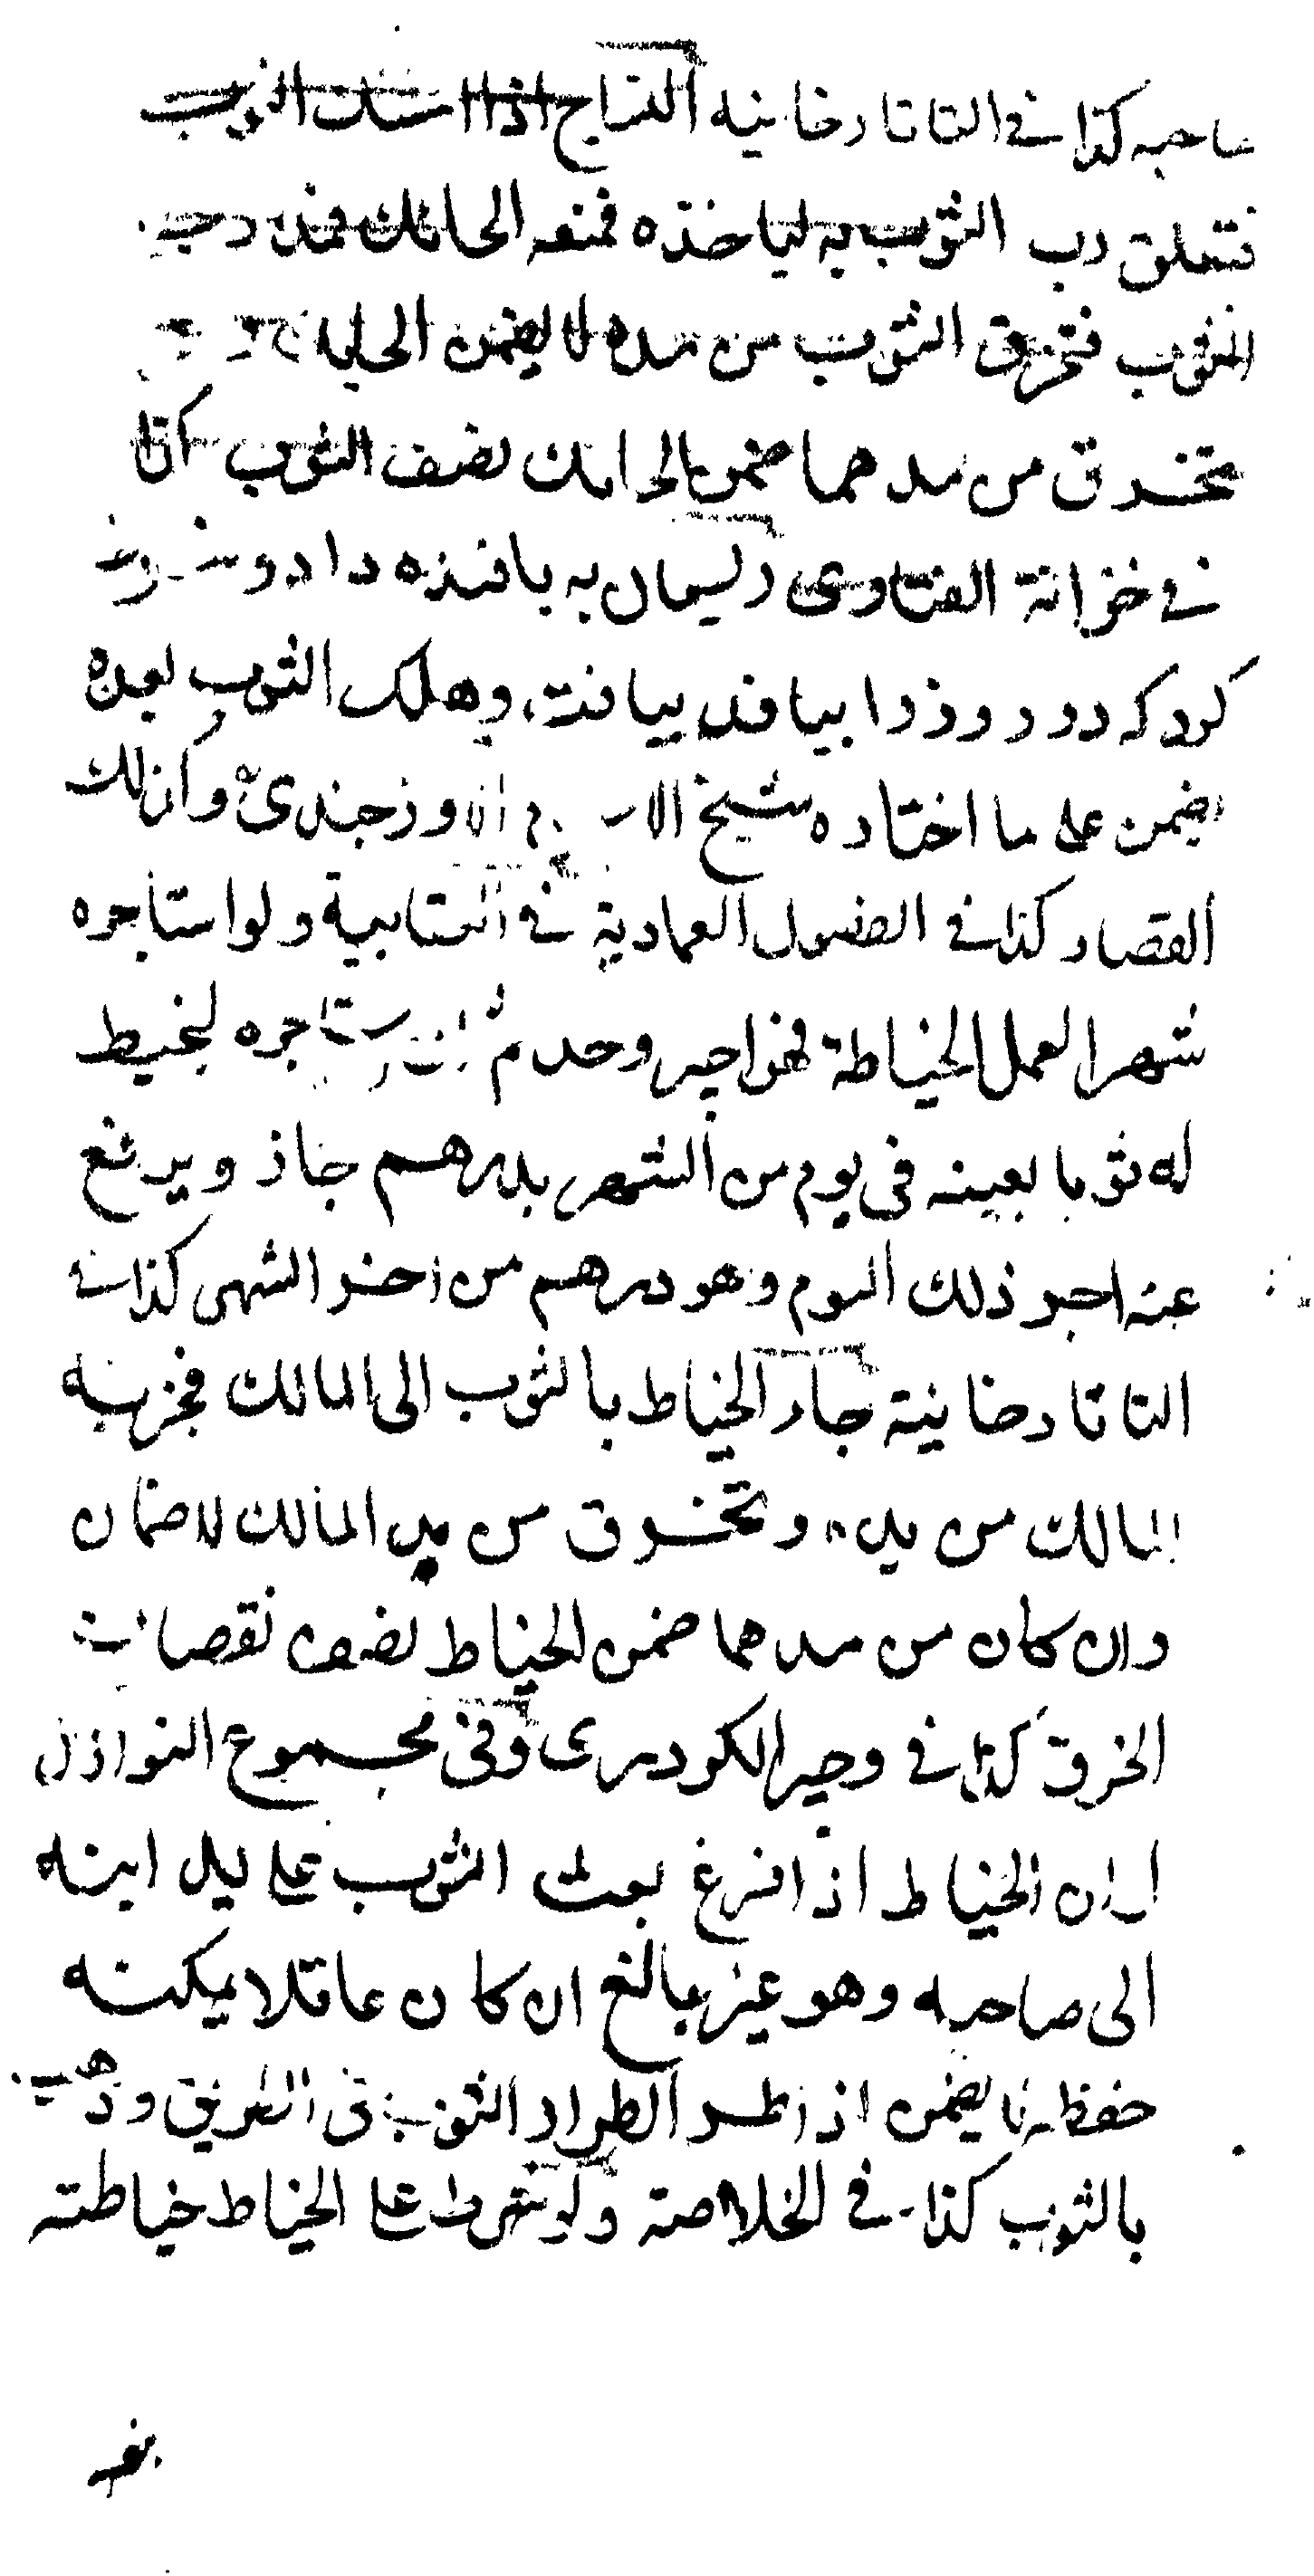 صاحبه كذا في التاتارخانية النساج اذا امسك الثوب
فتعلق رب الثوب به لياخذه فمنعه الحائك فمد رب
الثوب فتخرق الثوب من مده لا يضمن الحايك
تخرق من مدهما ضمن الحائك نصف الثوب كذا
في خزانة الفتاوى ريسمان به بافنده داد و شرط
كرد كه دو روز را ببافد ببافت وهلك الثوب بعده
يضمن على ما اختاره شيخ الاسلام الاوزجندي وكذلك
القصار كذا في الفصول العمادية في العتابية ولو استاجره
شهرا لعمل الخياطة فهو اجير وحد ثم ان استاجره لخيط
له ثوبا بعينه في يوم من الشهر بدرهم جاز ويرفع
عنه اجر ذلك اليوم وهو درهم من اخر الشهر كذا في
التاتارخانية جاء الخياط بالثوب الى المالك فجذبه
المالك من يده وتخرق من يد المالك لا ضمان
وان كان من مدهما ضمن الخياط نصف نقصان
الخرق كذا في وجيز الكردري وفي مجموع النوازل
ان الخياط اذا فرغ بعث الثوب على يد ابنه
الى صاحبه وهو غير بالغ ان كان عاقلا يمكنه
حفظه لا يضمن اذا طر الطرار الثوب في الطريق وذهب
بالثوب كذا في الخلاصة ولو شرط على الخياط خياطته